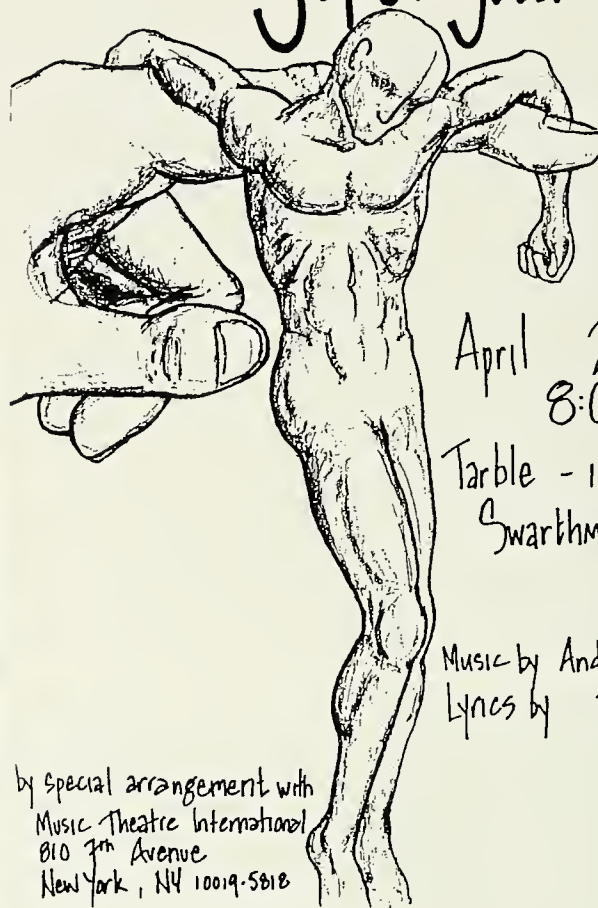 April
8:0
Tarble - i
Swarthm
Music by And
Lyrics by
by special arrangement with
Music Theatre International
810 7th Avenue
New York, NY 10019-5818